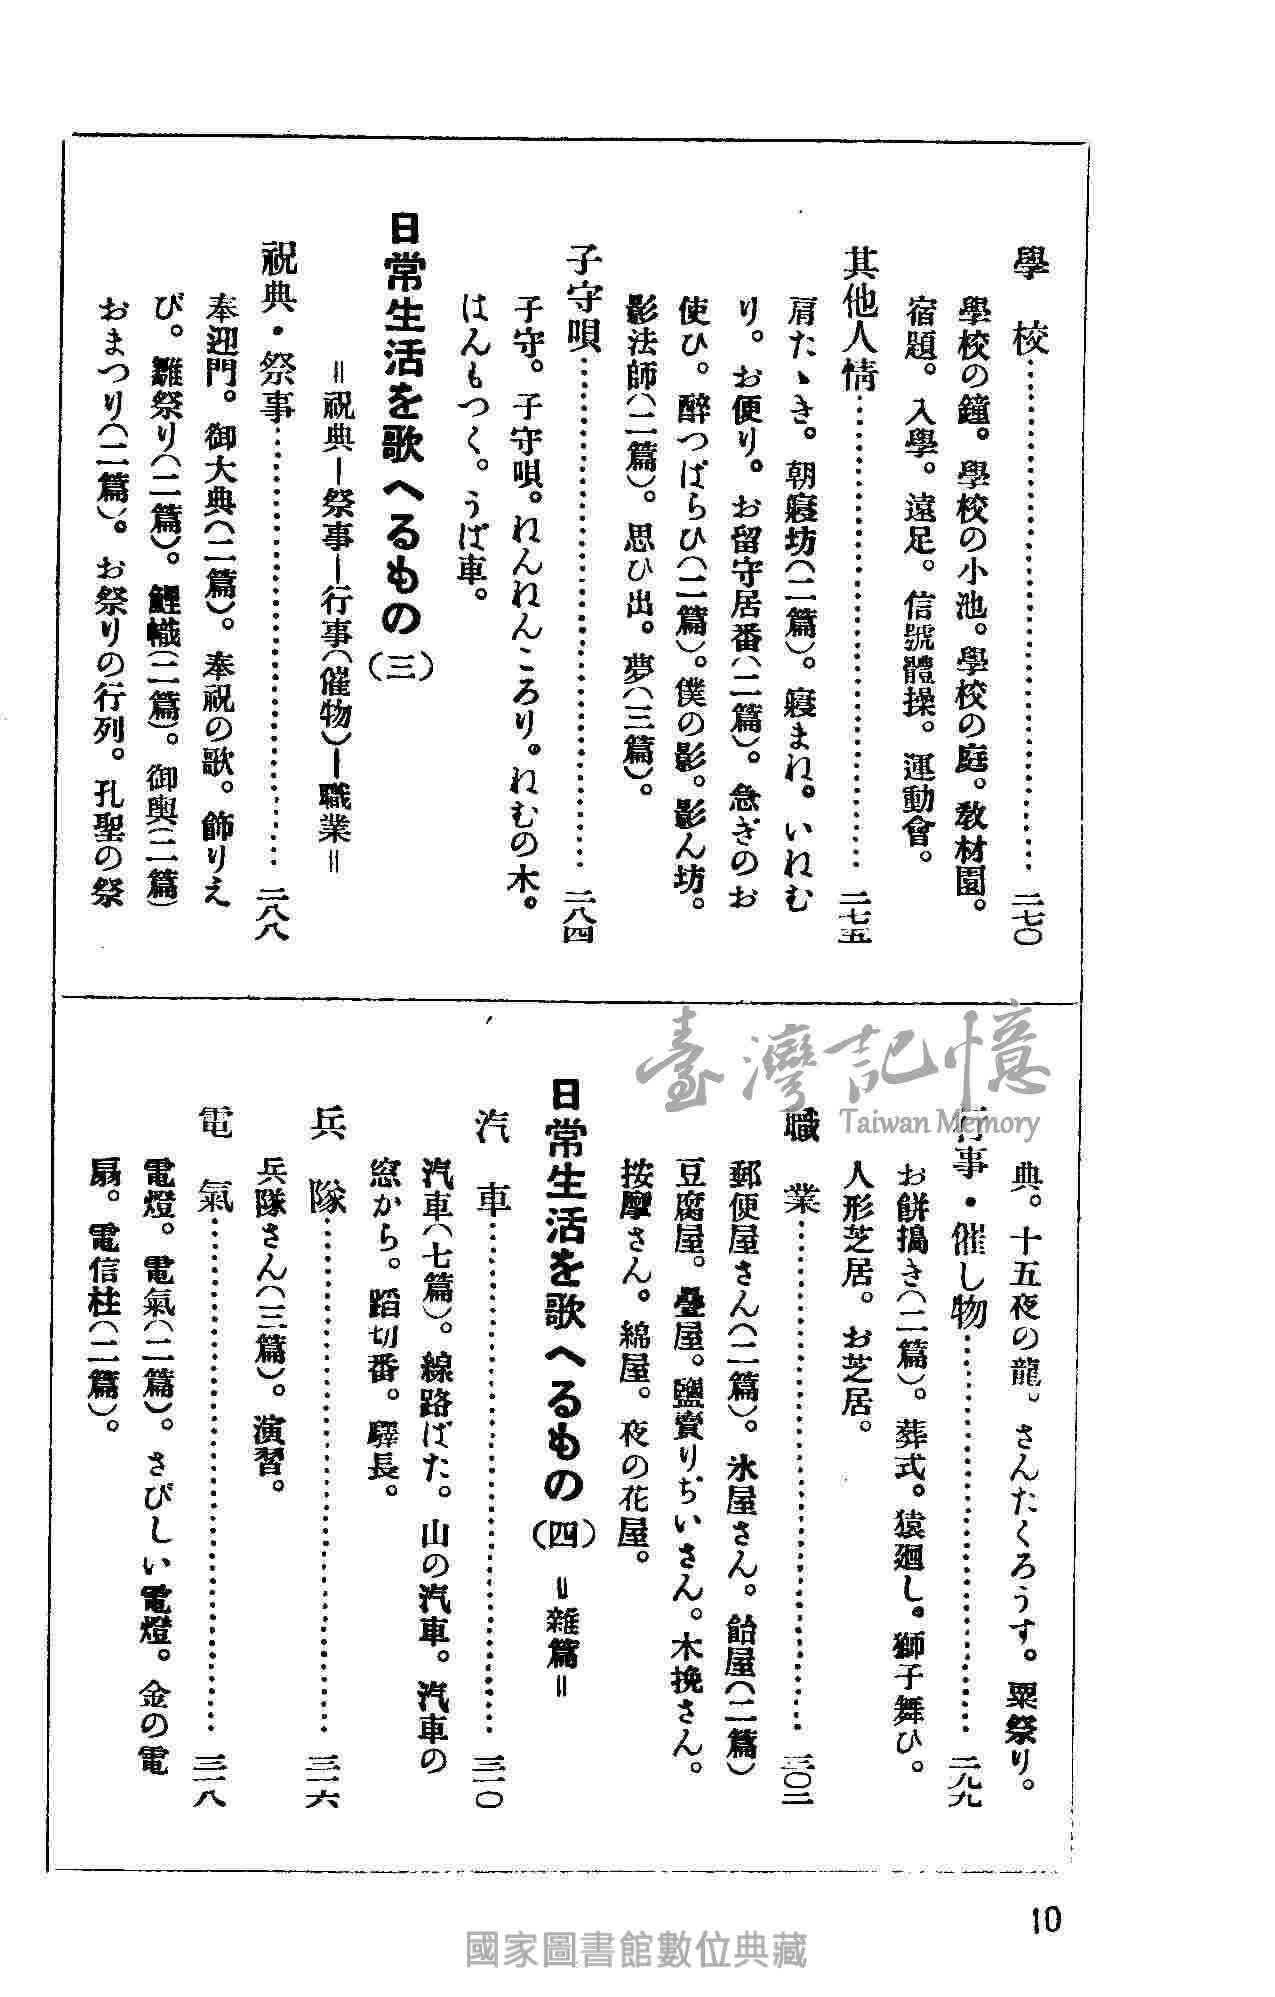 學校……二七〇
學校の鐘。學校の小池。學校の庭。教材園。
宿題。入學。遠足。信號體操。運動會。
其他人情……二七五
肩たゝき。朝寢坊(二篇)。寢まね。いねむ
り。お便り。お留守居番(二篇)。急ぎのお
使ひ。醉つぱらひ(二篇)。僕の影。影ん坊。
影法師(二篇)。思ひ出。夢(三篇)。
子守唄……二八四
子守。子守唄。ねんねんころり。ねむの木。
はんもつく。うば車。
日常生活を歌へるもの(三)
＝祝典ー祭事ー行事(催物)ー職業＝
祝典・祭事……二八八
奉迎門。御大典(二篇)。奉祝の歌。飾りえ
び。雛祭り(二篇)。鯉幟(二篇)。御輿(二篇)
おまつり(二篇)。お祭りの行列。孔聖の祭
典。十五夜の龍。さんたくろうす。粟祭り。
行事・催し物……二九九
お餅搗き(二篇)。葬式。猿廻し。獅子舞ひ。
人形芝居。お芝居。
職業……三〇二
郵便屋さん(二篇)。氷屋さん。飴屋(二篇)
豆腐屋。疊屋。鹽賣りぢいさん。木挽さん。
按摩さん。綿屋。夜の花屋。
日常生活を歌へるもの(四) ＝雜篇＝
汽車……三一〇
汽車(七篇)。線路ばた。山の汽車。汽車の
窓から。踏切番。驛長。
兵隊……三一六
兵隊さん(三篇)。演習。
電氣……三一八
電燈。電氣(二篇)。さびしい電燈。金の電
扇。電信柱(二篇)。
10
臺灣記憶
Taiwan Memory
國家圖書館數位典藏